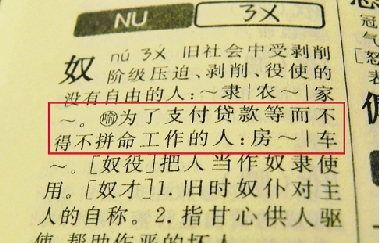 NU ㄋㄨ
奴 nú ㄋㄨ 旧社会中受剥削
阶级压迫、剥削、役使的
没有自由的人：～隶｜农～｜家
～。㊙为了支付贷款等而不
得不拼命工作的人：房～｜车
～。[奴役]把人当作奴隶使
用。[奴才]1.旧时奴仆对主
人的自称。2.指甘心供人驱
使,帮助作恶的坏人